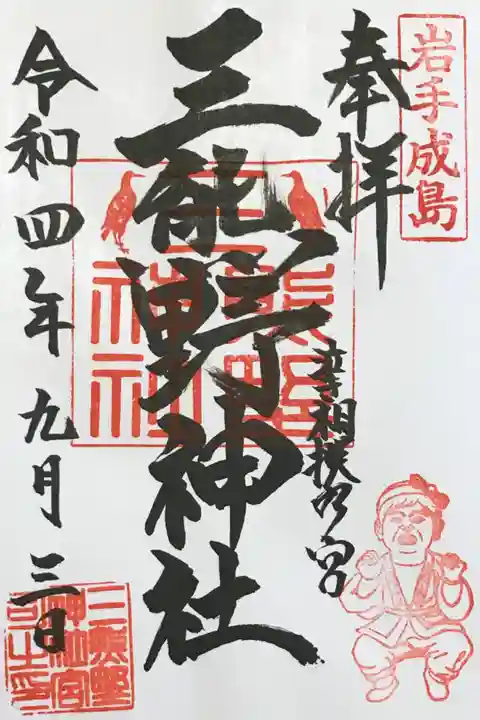 岩手成島
奉拝
三熊野神社
令和四年九月三日
三熊野
神社
三熊野
神社宮
司之印